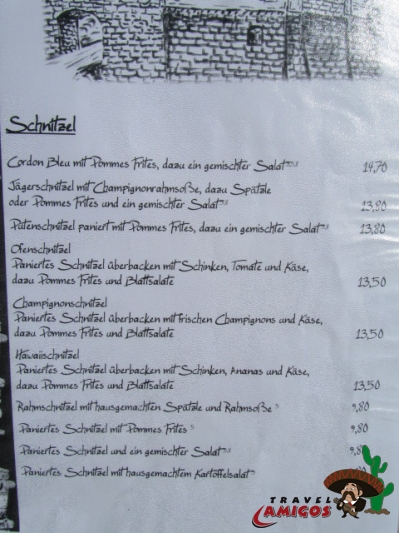 Schnitzel
Cordon Bleu mit Pommes Frites, dazu ein gemischter Salat 14,70
Jägerschnitzel mit Champignonrahmsoße, dazu Spätzle
oder Pommes Frites und ein gemischter Salat 13,80
Putenschnitzel paniert mit Pommes Frites, dazu ein gemischter Salat 13,80
Ofenschnitzel
Paniertes Schnitzel überbacken mit Schinken, Tomate und Käse,
dazu Pommes Frites und Blattsalate 13,50
Champignonschnitzel
Paniertes Schnitzel überbacken mit frischen Champignons und Käse,
dazu Pommes Frites und Blattsalate 13,50
Hawaiischnitzel
Paniertes Schnitzel überbacken mit Schinken, Ananas und Käse,
dazu Pommes Frites und Blattsalate 13,50
Rahmschnitzel mit hausgemachten Spätzle und Rahmsoße 9,80
Paniertes Schnitzel mit Pommes Frites 9,80
Paniertes Schnitzel und ein gemischter Salat
Paniertes Schnitzel mit hausgemachtem Kartoffelsalat
TRAVEL
AMIGOS